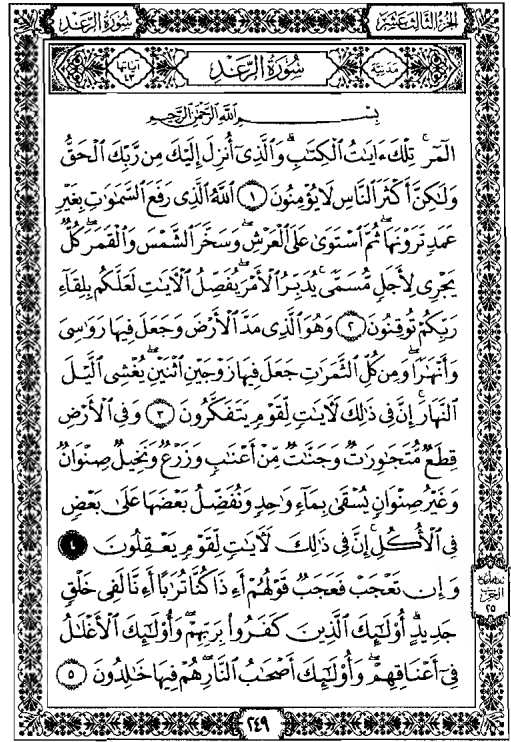 سُورَةُ الرَّعْدِ
الجُزْءُ الثَّالِثَ عَشَرَ
آياتها ٤٣
سُورَةُ الرَّعْدِ
مَدَنِيَّة
بِسْمِ اللَّهِ الرَّحْمَٰنِ الرَّحِيمِ
الٓمٓر ۚ تِلْكَ ءَايَٰتُ ٱلْكِتَٰبِ ۗ وَٱلَّذِىٓ أُنزِلَ إِلَيْكَ مِن رَّبِّكَ ٱلْحَقُّ
وَلَٰكِنَّ أَكْثَرَ ٱلنَّاسِ لَا يُؤْمِنُونَ ١ ٱللَّهُ ٱلَّذِى رَفَعَ ٱلسَّمَٰوَٰتِ بِغَيْرِ
عَمَدٍ تَرَوْنَهَا ۖ ثُمَّ ٱسْتَوَىٰ عَلَى ٱلْعَرْشِ ۖ وَسَخَّرَ ٱلشَّمْسَ وَٱلْقَمَرَ ۖ كُلٌّ
يَجْرِى لِأَجَلٍ مُّسَمًّى ۚ يُدَبِّرُ ٱلْأَمْرَ يُفَصِّلُ ٱلْءَايَٰتِ لَعَلَّكُم بِلِقَآءِ
رَبِّكُمْ تُوقِنُونَ ٢ وَهُوَ ٱلَّذِى مَدَّ ٱلْأَرْضَ وَجَعَلَ فِيهَا رَوَٰسِىَ
وَأَنْهَٰرًا ۖ وَمِن كُلِّ ٱلثَّمَرَٰتِ جَعَلَ فِيهَا زَوْجَيْنِ ٱثْنَيْنِ ۖ يُغْشِى ٱلَّيْلَ
ٱلنَّهَارَ ۚ إِنَّ فِى ذَٰلِكَ لَءَايَٰتٍ لِّقَوْمٍ يَتَفَكَّرُونَ ٣ وَفِى ٱلْأَرْضِ
قِطَعٌ مُّتَجَٰوِرَٰتٌ وَجَنَّٰتٌ مِّنْ أَعْنَٰبٍ وَزَرْعٌ وَنَخِيلٌ صِنْوَانٌ
وَغَيْرُ صِنْوَانٍ يُسْقَىٰ بِمَآءٍ وَٰحِدٍ وَنُفَضِّلُ بَعْضَهَا عَلَىٰ بَعْضٍ
فِى ٱلْأُكُلِ ۚ إِنَّ فِى ذَٰلِكَ لَءَايَٰتٍ لِّقَوْمٍ يَعْقِلُونَ ٤
وَإِن تَعْجَبْ فَعَجَبٌ قَوْلُهُمْ أَءِذَا كُنَّا تُرَٰبًا أَءِنَّا لَفِى خَلْقٍ
جَدِيدٍ ۗ أُو۟لَٰٓئِكَ ٱلَّذِينَ كَفَرُوا۟ بِرَبِّهِمْ ۖ وَأُو۟لَٰٓئِكَ ٱلْأَغْلَٰلُ
فِىٓ أَعْنَاقِهِمْ ۖ وَأُو۟لَٰٓئِكَ أَصْحَٰبُ ٱلنَّارِ ۖ هُمْ فِيهَا خَٰلِدُونَ ٥
الحزب
٢٥
٢٤٩